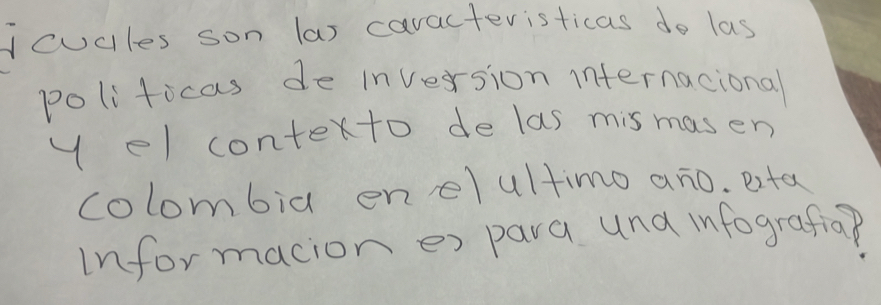 ¿cuales son las caracteristicas de las
politicas de inversion internacional
y el contexto de las mismas en
colombia en el ultimo año. esta
informacion es para una infografia?